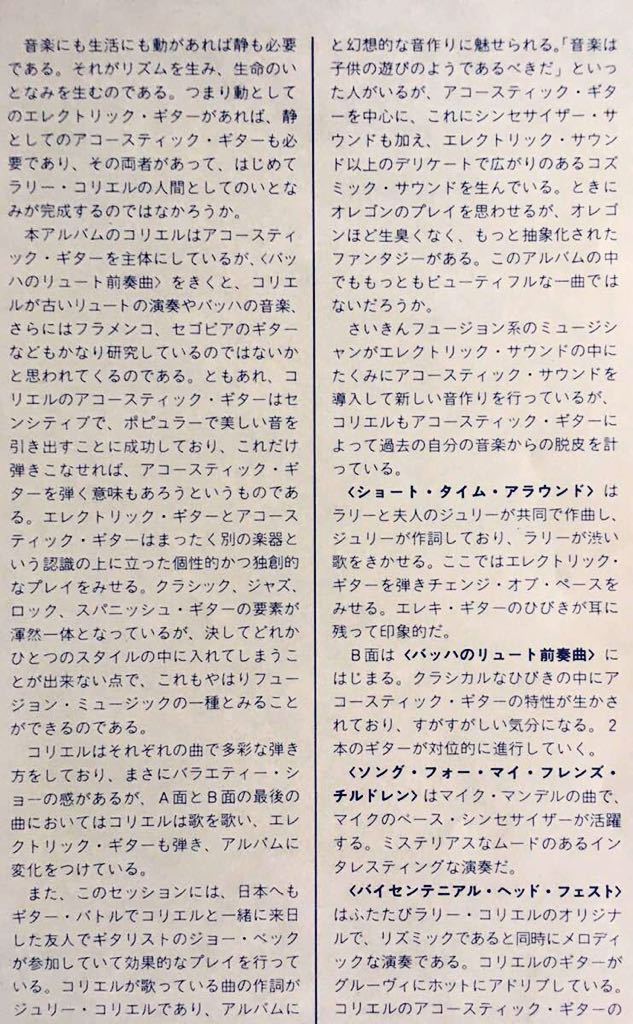 音楽にも生活にも動があれば静も必要
である。それがリズムを生み、生命のい
となみを生むのである。つまり動として
のエレクトリック・ギターがあれば、静
としてのアコースティック・ギターも必
要であり、その両者があって、はじめて
ラリー・コリエルの人間としてのいとな
みが完成するのではなかろうか。
本アルバムのコリエルはアコースティ
ック・ギターを主体にしているが、〈バッ
ハのリュート前奏曲〉をきくと、コリエ
ルが古いリュートの演奏やバッハの音楽、
さらにはフラメンコ、セゴビアのギター
などもかなり研究しているのではないか
と思われてくるのである。ともあれ、コ
リエルのアコースティック・ギターはセ
ンシティブで、ポピュラーで美しい音を
引き出すことに成功しており、これだけ
弾きこなせれば、アコースティック・ギ
ターを弾く意味もあろうというものであ
る。エレクトリック・ギターとアコース
ティック・ギターはまったく別の楽器と
いう認識の上に立った個性的かつ独創的
なプレイをみせる。クラシック、ジャズ、
ロック、スパニッシュ・ギターの要素が
渾然一体となっているが、決してどれか
ひとつのスタイルの中に入れてしまうこ
とが出来ない点で、これもやはりフュー
ジョン・ミュージックの一種とみること
ができるのである。
コリエルはそれぞれの曲で多彩な弾き
方をしており、まさにバラエティー・シ
ョーの感があるが、A面とB面の最後の
曲においてはコリエルは歌を歌い、エレ
クトリック・ギターも弾き、アルバムに
変化をつけている。
また、このセッションには、日本へも
ギター・バトルでコリエルと一緒に来日
した友人でギタリストのジョー・ベック
が参加していて効果的なプレイを行って
いる。コリエルが歌っている曲の作詞が
ジュリー・コリエルであり、アルバムに
と幻想的な音作りに魅せられる。「音楽は
子供の遊びのようであるべきだ」といっ
た人がいるが、アコースティック・ギタ
ーを中心に、これにシンセサイザー・サ
ウンドも加え、エレクトリック・サウン
ド以上のデリケートで広がりのあるコズ
ミック・サウンドを生んでいる。ときに
オレゴンのプレイを思わせるが、オレゴ
ンほど生臭くなく、もっと抽象化された
ファンタジーがある。このアルバムの中
でももっともビューティフルな一曲では
ないだろうか。
さいきんフュージョン系のミュージシ
ャンがエレクトリック・サウンドの中に
たくみにアコースティック・サウンドを
導入して新しい音作りを行っているが、
コリエルもアコースティック・ギターに
よって過去の自分の音楽からの脱皮を計
っている。
〈ショート・タイム・アラウンド〉は
ラリーと夫人のジュリーが共同で作曲し、
ジュリーが作詞しており、ラリーが渋い
歌をきかせる。ここではエレクトリック・
ギターを弾きチェンジ・オブ・ペースを
みせる。エレキ・ギターのひびきが耳に
残って印象的だ。
B面は〈バッハのリュート前奏曲〉に
はじまる。クラシカルなひびきの中にア
コースティック・ギターの特性が生かさ
れており、すがすがしい気分になる。2
本のギターが対位的に進行していく。
〈ソング・フォー・マイ・フレンズ・
チルドレン〉はマイク・マンデルの曲で、
マイクのベース・シンセサイザーが活躍
する。ミステリアスなムードのあるイン
タレスティングな演奏だ。
〈バイセンテニアル・ヘッド・フェスト〉
はふたたびラリー・コリエルのオリジナ
ルで、リズミックであると同時にメロディ
ックな演奏である。コリエルのギターが
グルーヴィにホットにアドリブしている。
コリエルのアコースティック・ギターの